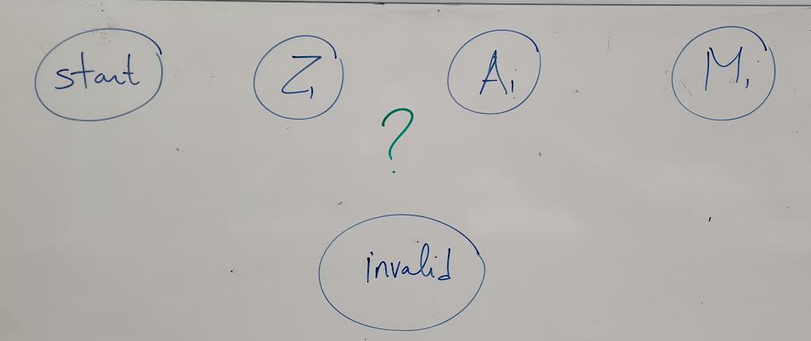 start Z₁ A₁ M₁
?
invalid